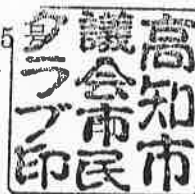 高知市
議会市民
クラブ印
5